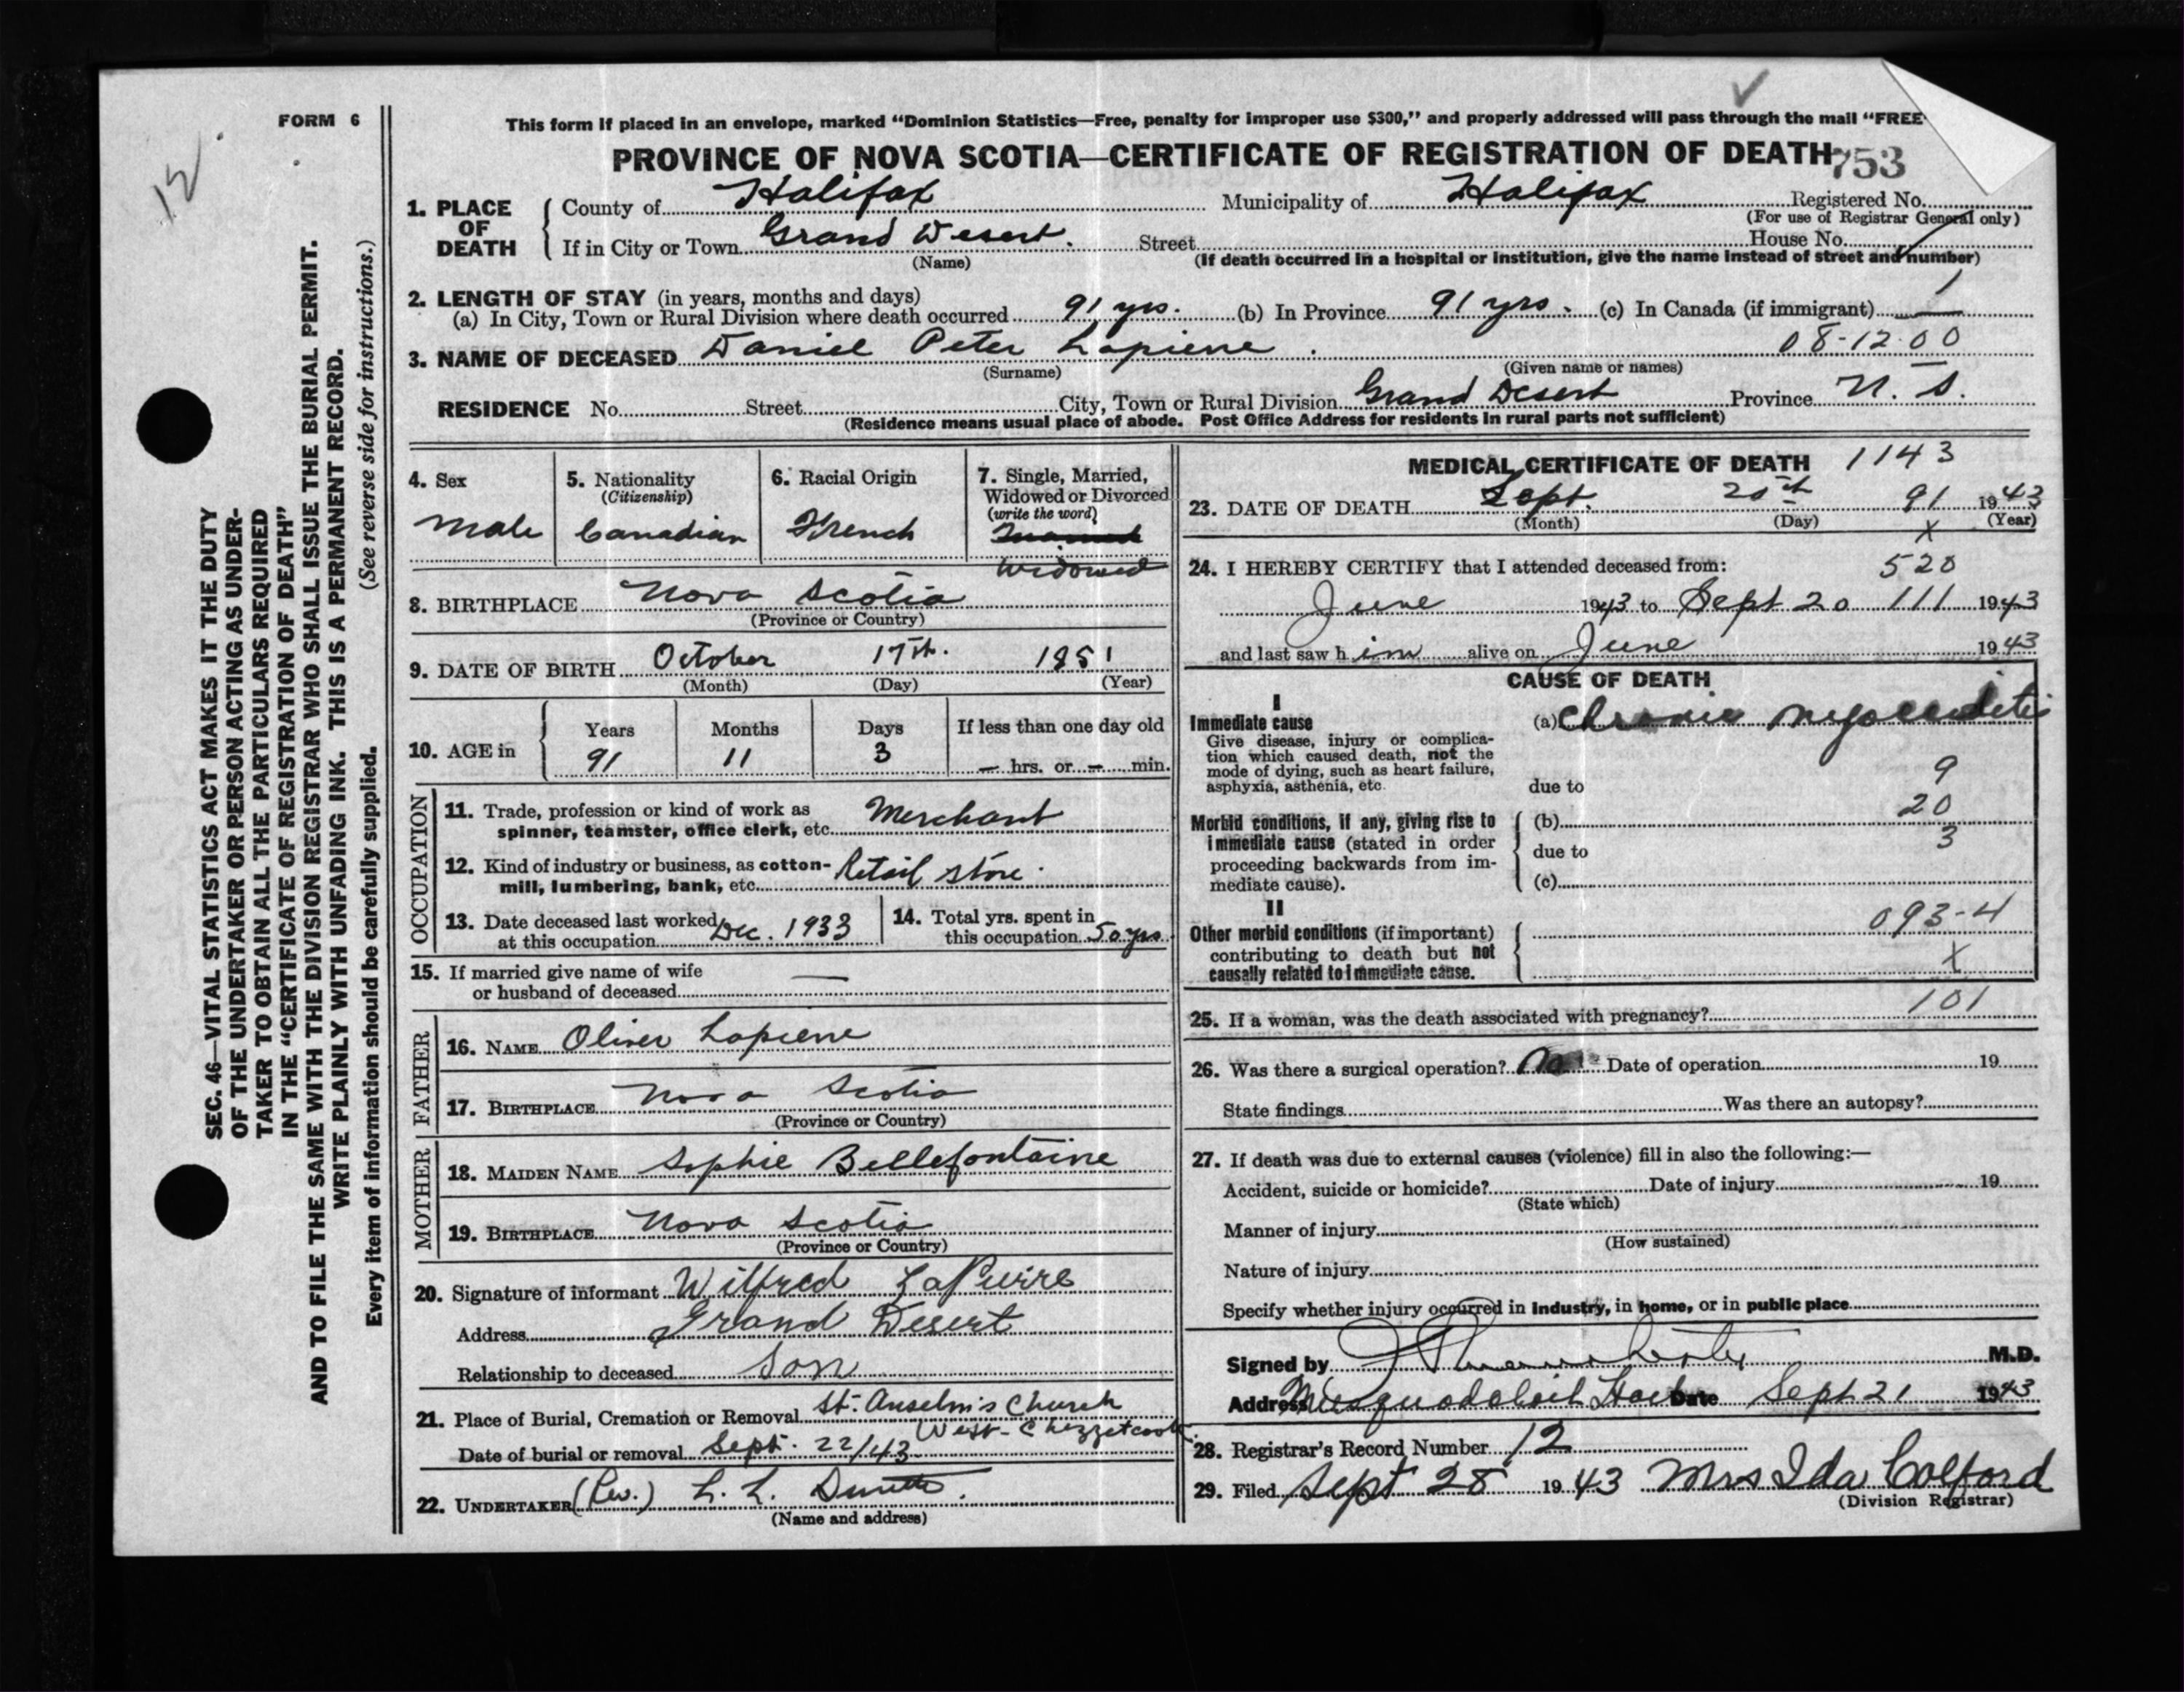 FORM 6
12
This form if placed in an envelope, marked "Dominion Statistics—Free, penalty for improper use $300," and properly addressed will pass through the mail "FREE
PROVINCE OF NOVA SCOTIA—CERTIFICATE OF REGISTRATION OF DEATH
753
1. PLACE OF DEATH
County of Halifax Municipality of Halifax Registered No.
(For use of Registrar General only)
If in City or Town Grand Desert. Street House No.
(Name) (If death occurred in a hospital or institution, give the name instead of street and number)
2. LENGTH OF STAY (in years, months and days) 1
(a) In City, Town or Rural Division where death occurred 91 yrs. (b) In Province 91 yrs. (c) In Canada (if immigrant) —
3. NAME OF DECEASED Daniel Peter Lapierre. 08-12-00
(Surname) (Given name or names)
RESIDENCE No. Street City, Town or Rural Division Grand Desert Province N. S.
(Residence means usual place of abode. Post Office Address for residents in rural parts not sufficient)
4. Sex
Male
5. Nationality
(Citizenship)
Canadian
6. Racial Origin
French
7. Single, Married,
Widowed or Divorced
(write the word)
Married
Widowed
8. BIRTHPLACE Nova Scotia
(Province or Country)
9. DATE OF BIRTH October 17th. 1851
(Month) (Day) (Year)
10. AGE in
Years Months Days If less than one day old
91 11 3 — hrs. or — min.
OCCUPATION
11. Trade, profession or kind of work as
spinner, teamster, office clerk, etc. Merchant
12. Kind of industry or business, as cotton-
mill, lumbering, bank, etc. Retail store.
13. Date deceased last worked
at this occupation Dec. 1933
14. Total yrs. spent in
this occupation 50 yrs
15. If married give name of wife
or husband of deceased —
FATHER
16. NAME Oliver Lapierre
17. BIRTHPLACE Nova Scotia
(Province or Country)
MOTHER
18. MAIDEN NAME Sophie Bellefontaine
19. BIRTHPLACE Nova Scotia
(Province or Country)
20. Signature of informant Wilfred LaPierre
Address Grand Desert
Relationship to deceased Son
21. Place of Burial, Cremation or Removal St. Anselm's Church
West-Chezzetcook
Date of burial or removal Sept. 22/43
22. UNDERTAKER (Rev.) L. L.
(Name and address)
MEDICAL CERTIFICATE OF DEATH 1143
23. DATE OF DEATH Sept. 20th 91 1943
(Month) (Day) x (Year)
24. I HEREBY CERTIFY that I attended deceased from: 520
June 1943 to Sept 20 111 1943
and last saw him alive on June 1943
CAUSE OF DEATH
I
Immediate cause
Give disease, injury or complica-
tion which caused death, not the
mode of dying, such as heart failure,
asphyxia, asthenia, etc.
(a) Chronic myocarditis
due to
9
20
3
Morbid conditions, if any, giving rise to
immediate cause (stated in order
proceeding backwards from im-
mediate cause).
(b)
due to
(c)
II
Other morbid conditions (if important)
contributing to death but not
causally related to immediate cause.
093-4
x
25. If a woman, was the death associated with pregnancy? 101
26. Was there a surgical operation? No Date of operation 19
State findings Was there an autopsy?
27. If death was due to external causes (violence) fill in also the following:—
Accident, suicide or homicide? Date of injury 19
(State which)
Manner of injury
(How sustained)
Nature of injury
Specify whether injury occurred in industry, in home, or in public place
Signed by M.D.
Address Musquodoboit Harb Date Sept 21 1943
28. Registrar's Record Number 12
29. Filed Sept 28 1943 Mrs Ida Colford
(Division Registrar)
SEC. 46—VITAL STATISTICS ACT MAKES IT THE DUTY
OF THE UNDERTAKER OR PERSON ACTING AS UNDER-
TAKER TO OBTAIN ALL THE PARTICULARS REQUIRED
IN THE "CERTIFICATE OF REGISTRATION OF DEATH"
AND TO FILE THE SAME WITH THE DIVISION REGISTRAR WHO SHALL ISSUE THE BURIAL PERMIT.
WRITE PLAINLY WITH UNFADING INK. THIS IS A PERMANENT RECORD.
Every item of information should be carefully supplied. (See reverse side for instructions.)